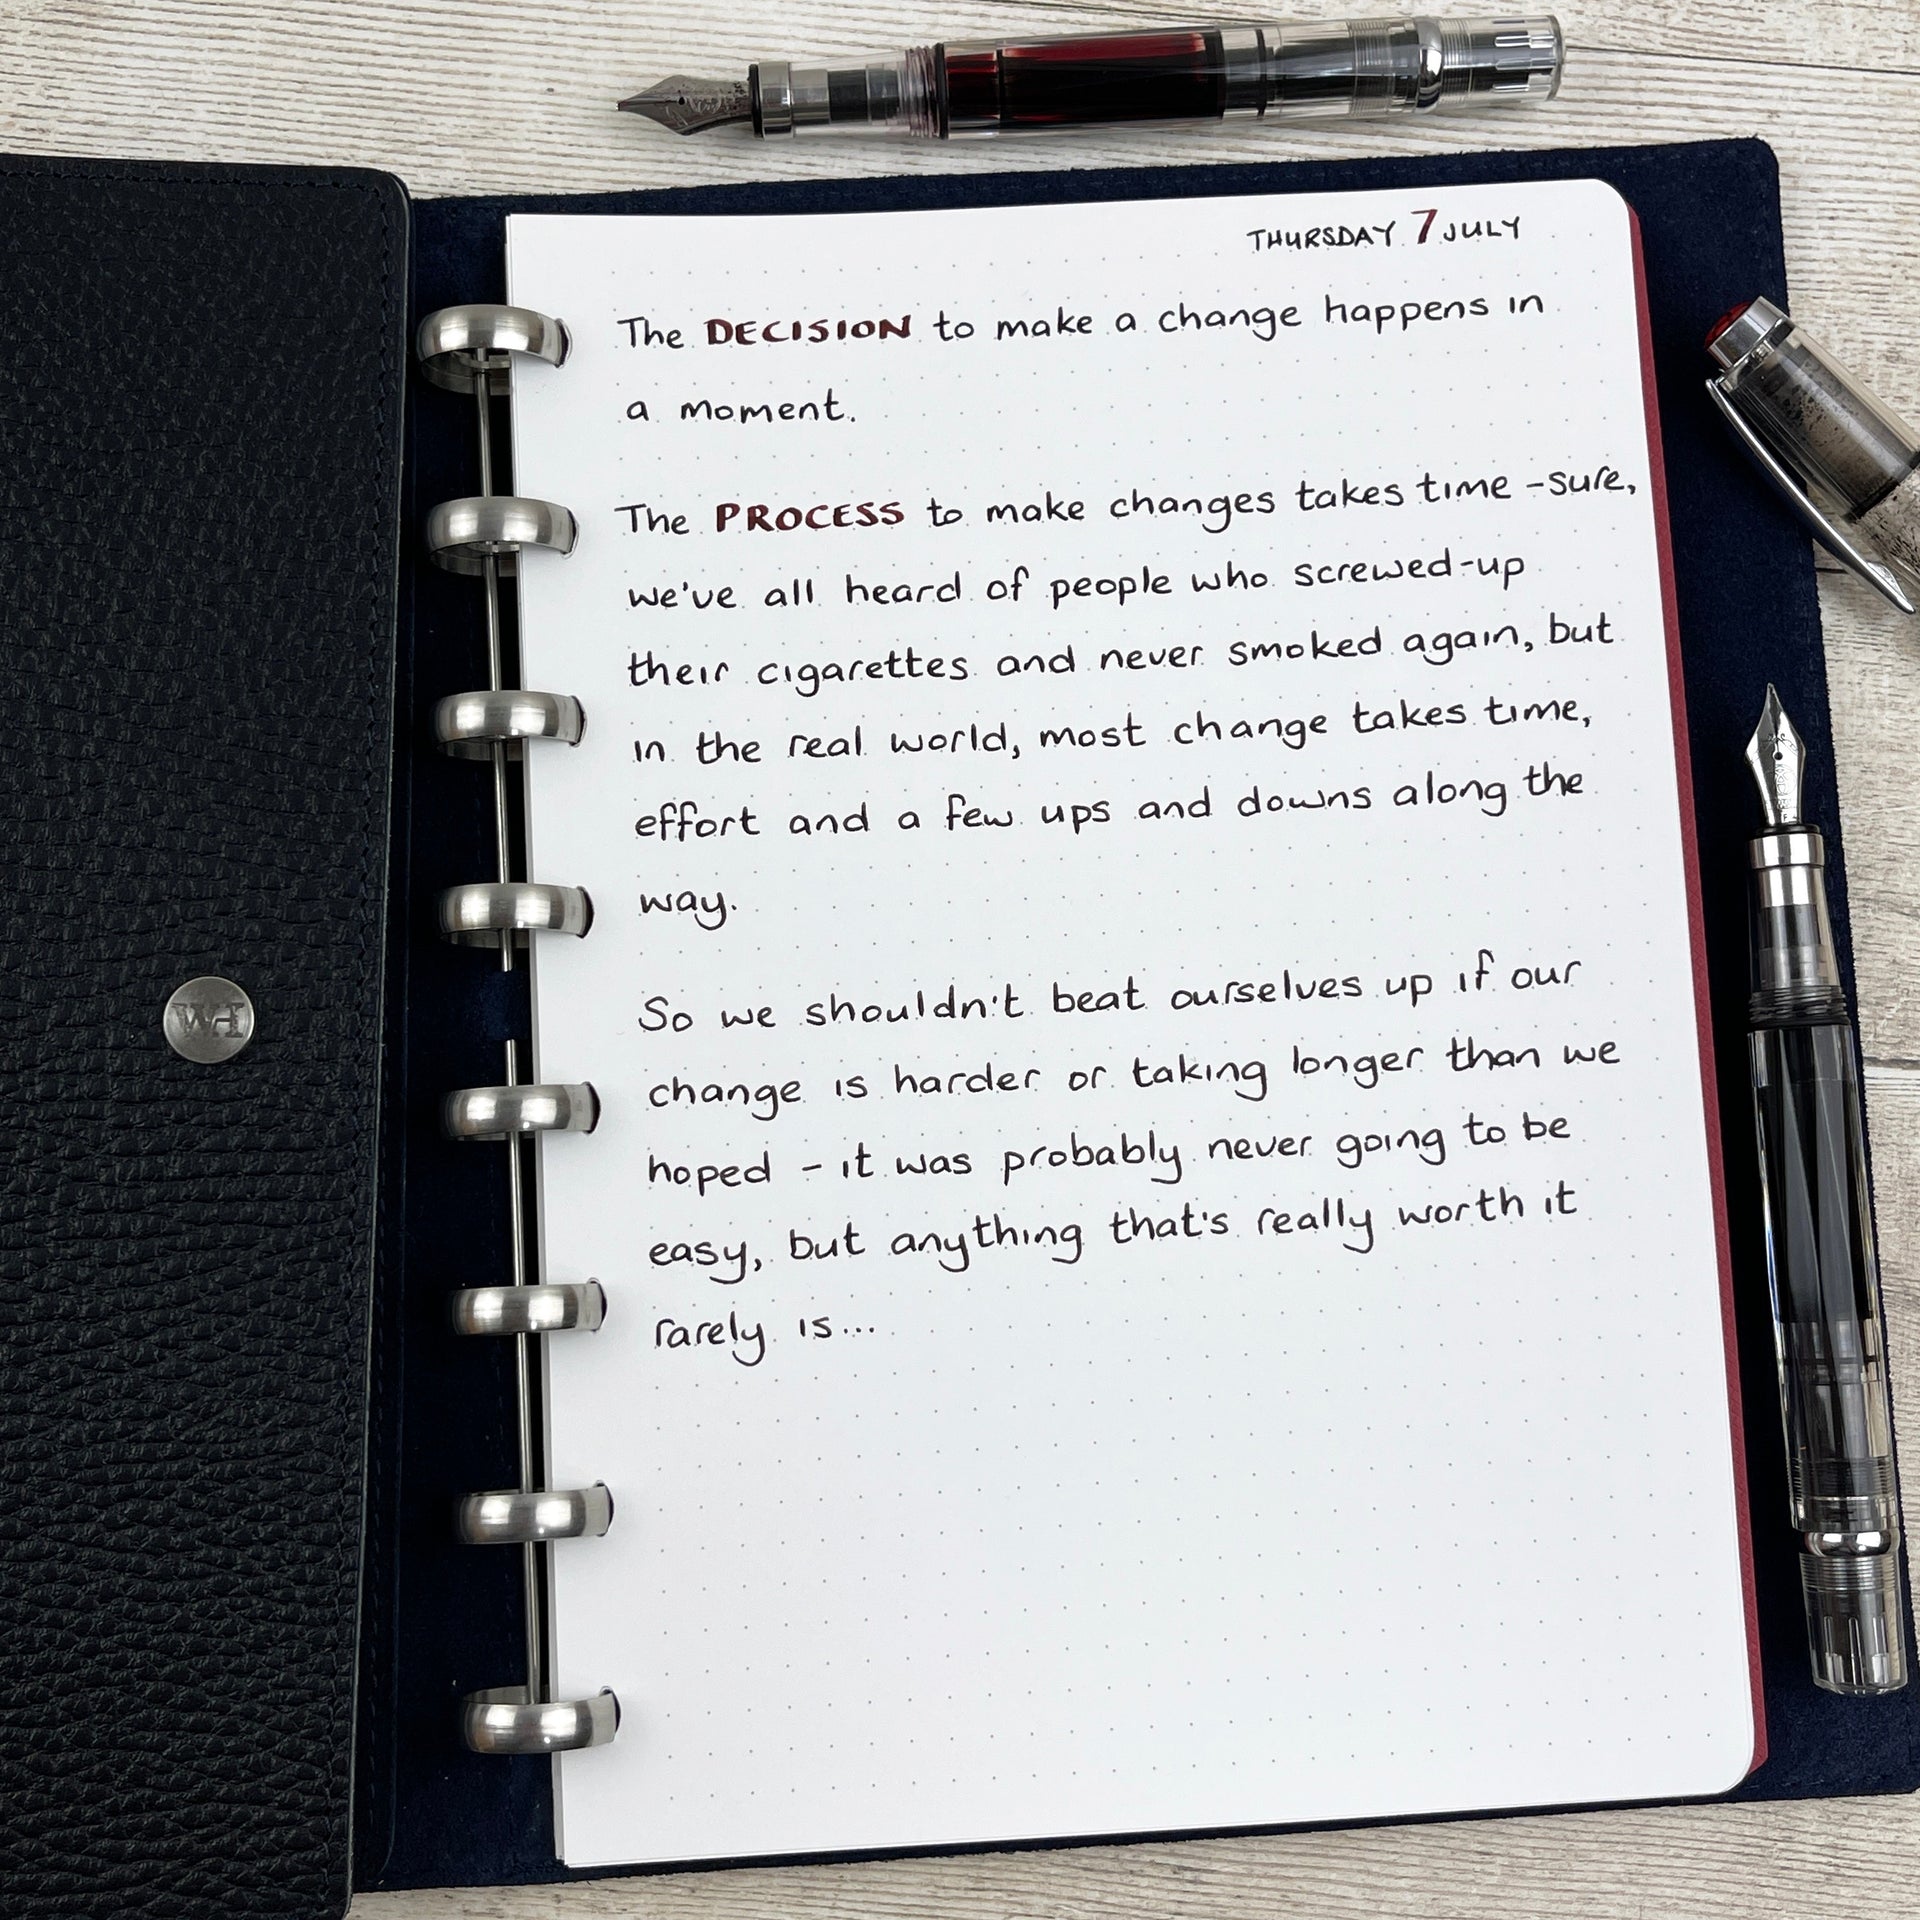 THURSDAY 7 JULY
The DECISION to make a change happens in
a moment.
The PROCESS to make changes takes time - sure,
we've all heard of people who screwed-up
their cigarettes and never smoked again, but
in the real world, most change takes time,
effort and a few ups and downs along the
way.
So we shouldn't beat ourselves up if our
change is harder or taking longer than we
hoped - it was probably never going to be
easy, but anything that's really worth it
rarely is...
WH